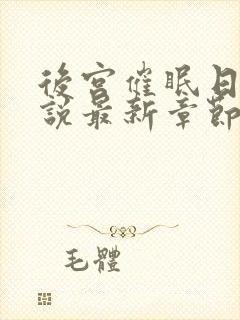 後宮催眠日
說最新章節
毛體